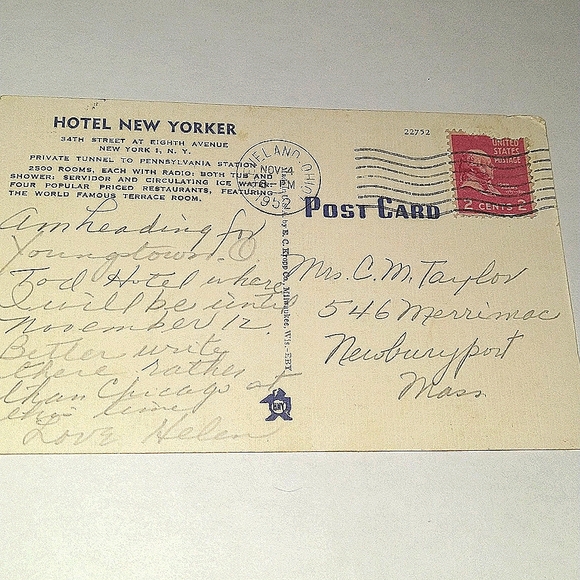 HOTEL NEW YORKER
34TH STREET AT EIGHTH AVENUE
NEW YORK 1, N. Y.
PRIVATE TUNNEL TO PENNSYLVANIA STATION
2500 ROOMS, EACH WITH RADIO; BOTH TUB AND
SHOWER; SERVIDOR AND CIRCULATING ICE WATER
FOUR POPULAR PRICED RESTAURANTS, FEATURING
THE WORLD FAMOUS TERRACE ROOM.
Am heading for
Youngstown, O
Tod Hotel where
I will be until
November 12.
Better write
there rather
than Chicago at
this time
Love Helen
E. C. Kropp Co., Milwaukee, Wis.—EBY
22752
CLEVELAND, OHIO
NOV 4
PM
1952
UNITED
STATES
POSTAGE
2 CENTS 2
POST CARD
Mrs. C. M. Taylor
546 Merrimac
Newburyport
Mass.